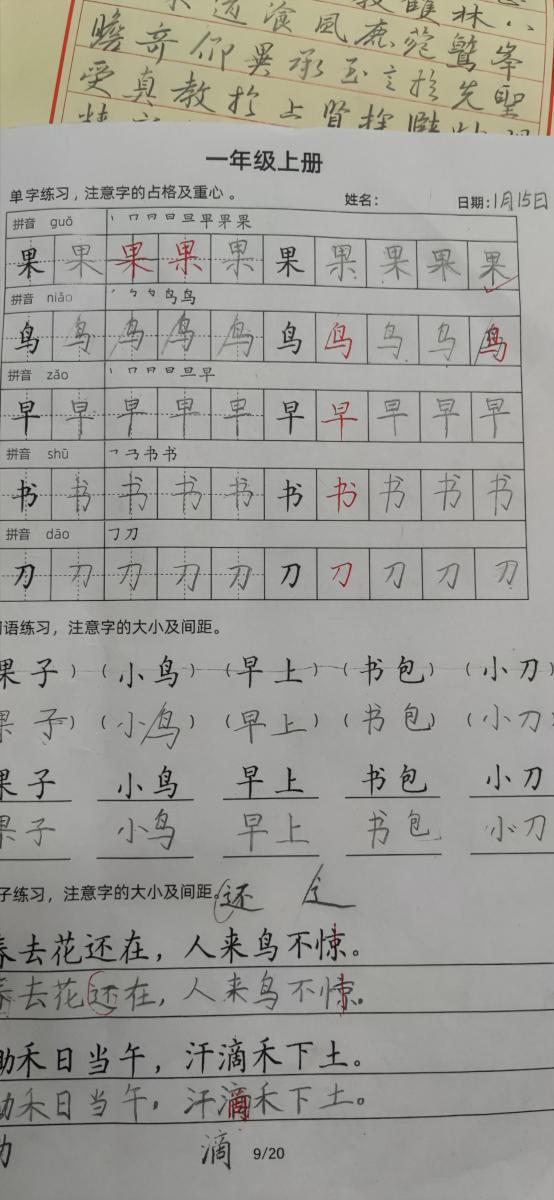 瞻奇仰異承玉言於先聖
受真教於上賢探賾
一年级上册
单字练习，注意字的占格及重心。 姓名： 日期：1月15日
拼音 guǒ 丨 冂 冃 日 旦 早 果 果
果 果 果 果 果 果 果 果 果 果
拼音 niǎo 鸟 鸟
鸟 鸟 鸟 鸟 鸟 鸟 鸟 鸟 鸟 鸟
拼音 zǎo 丨 冂 冃 日 旦 早
早 早 早 早 早 早 早 早 早 早
拼音 shū 书 书
书 书 书 书 书 书 书 书 书 书
拼音 dāo 刀 刀
刀 刀 刀 刀 刀 刀 刀 刀 刀 刀
词语练习，注意字的大小及间距。
果子）（小鸟）（早上）（书包）（小刀）
果子）（小鸟）（早上）（书包）（小刀）
果子 小鸟 早上 书包 小刀
果子 小鸟 早上 书包 小刀
子练习，注意字的大小及间距。还 辶
春去花还在，人来鸟不惊。
春去花还在，人来鸟不惊。
锄禾日当午，汗滴禾下土。
锄禾日当午，汗滴禾下土。
滴 9/20